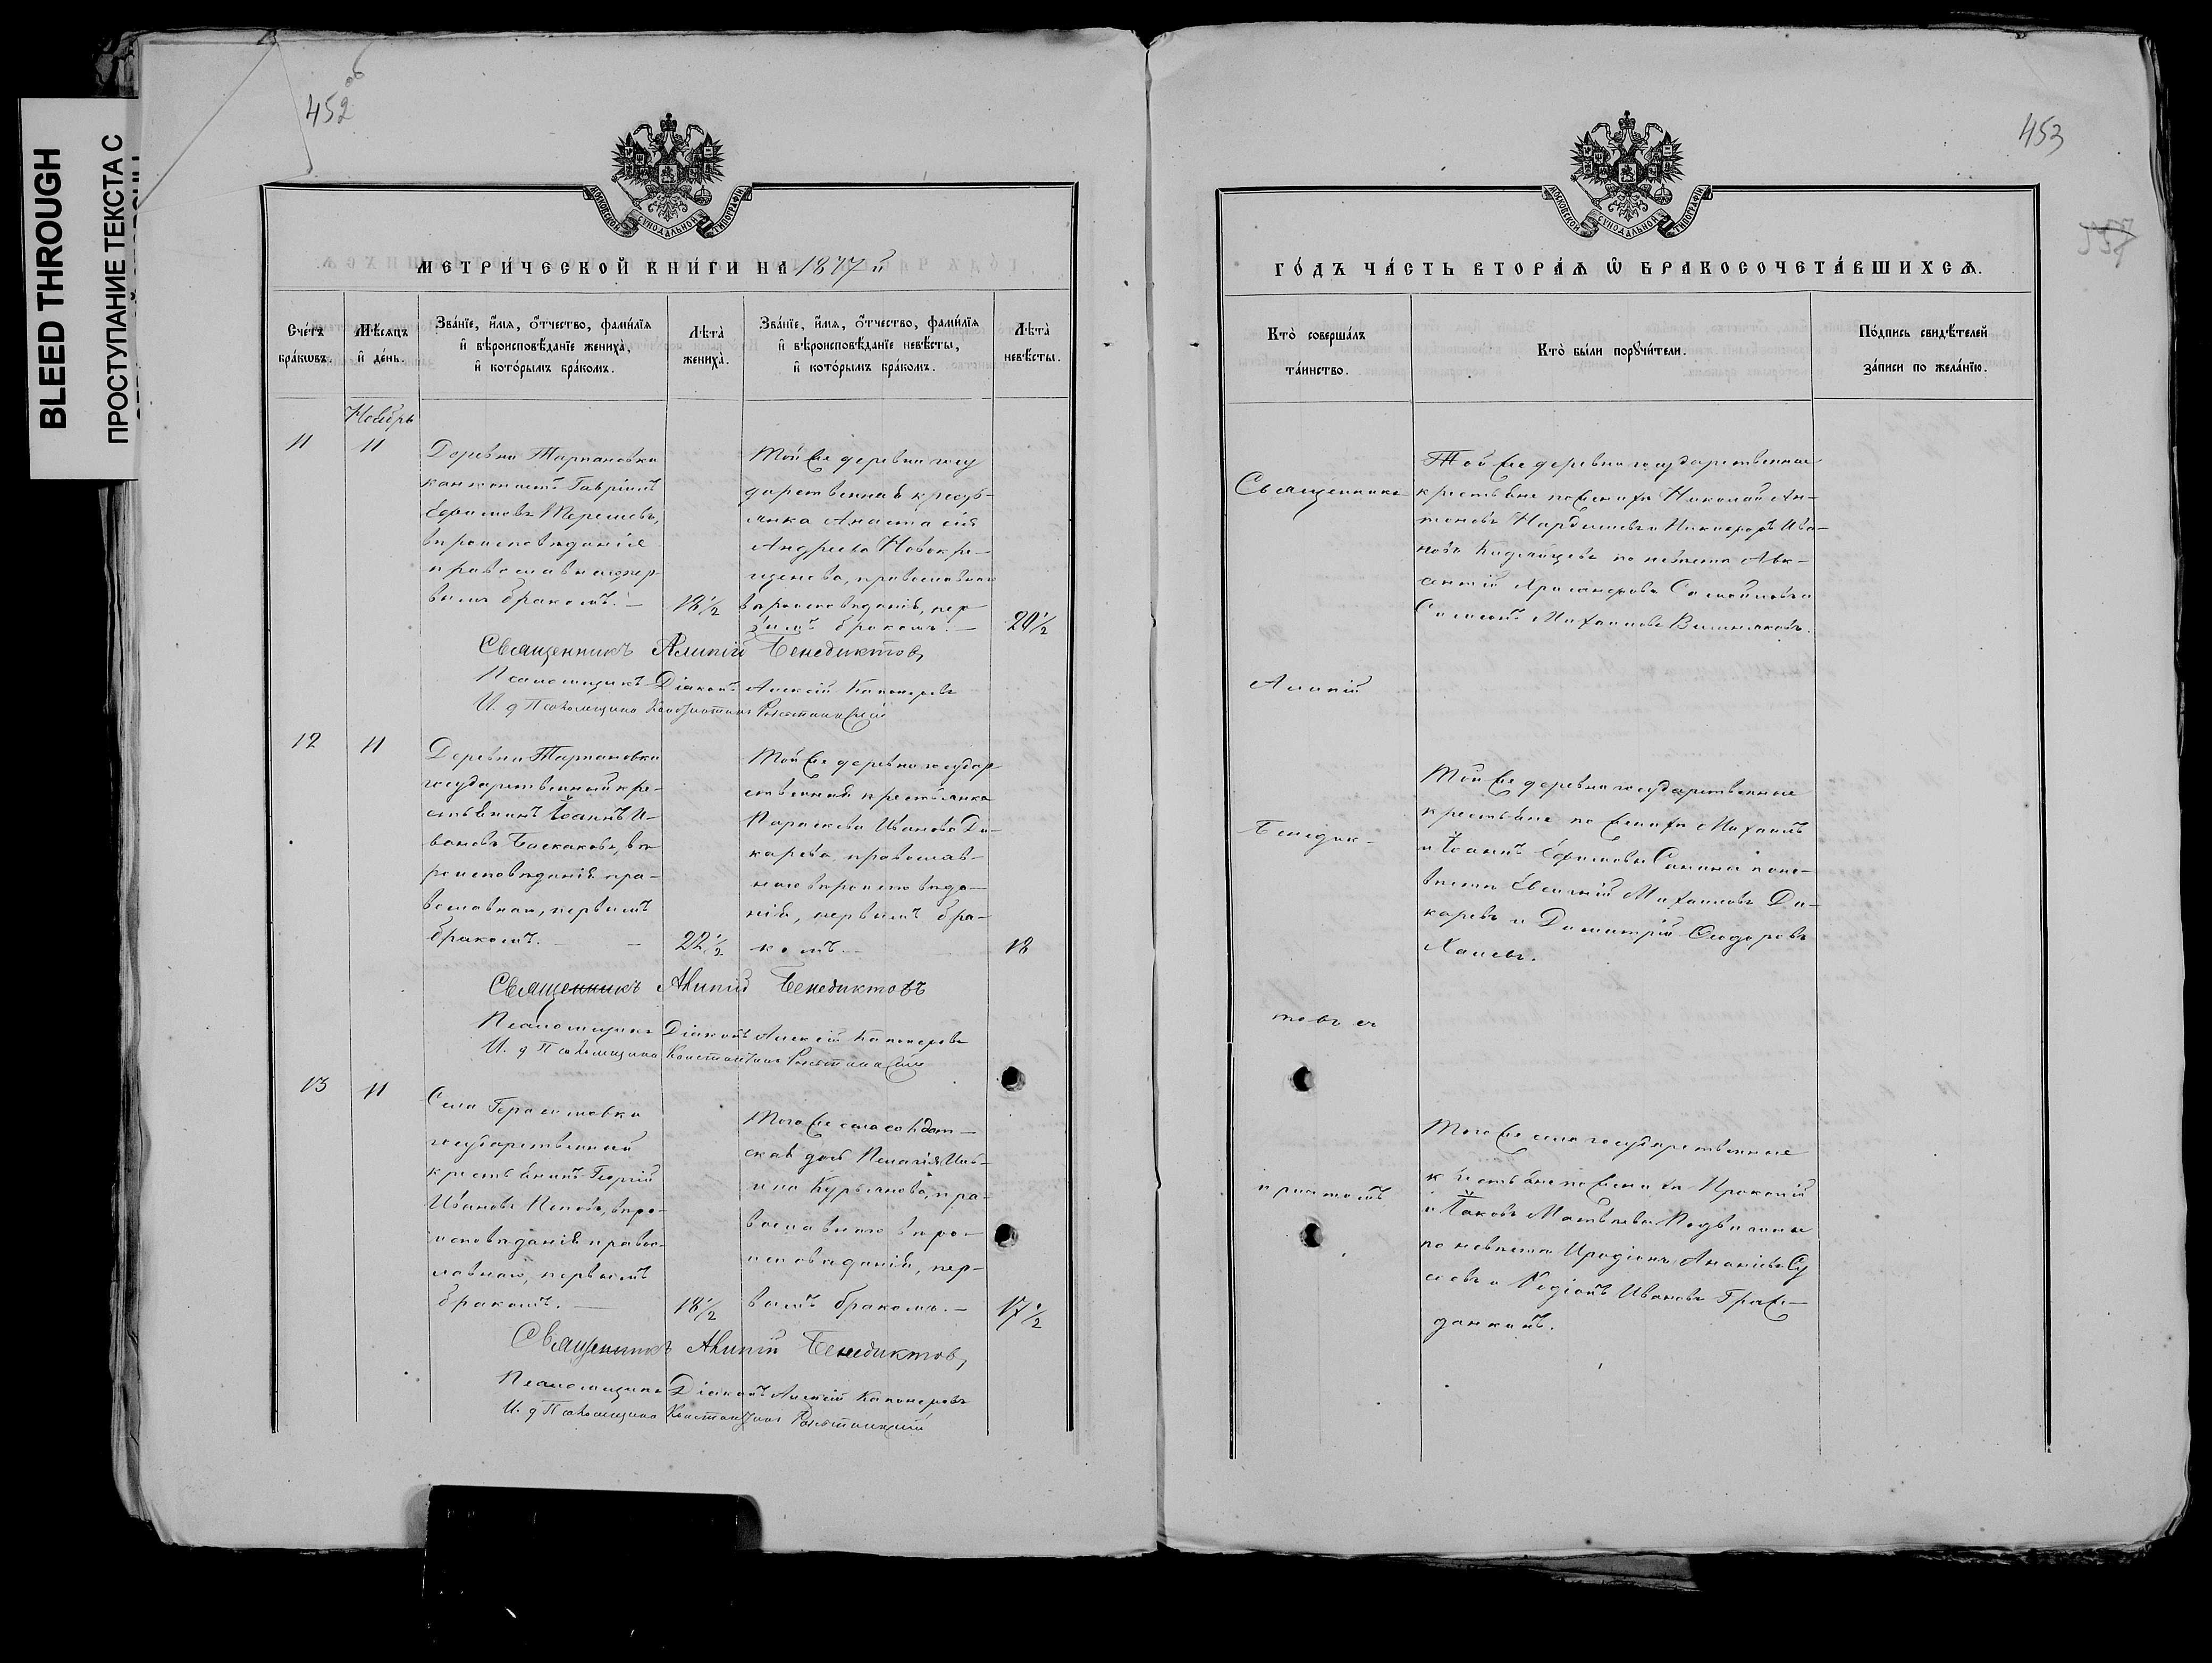 BLEED THROUGH
ПРОСТУПАНИЕ ТЕКСТА С
452 об
МОСКОВСКОЙ СѴНОДАЛЬНОЙ ТИПОГРАФІИ
МЕТРИ́ЧЕСКОЙ КНИ́ГИ НА 1877 й
Сче́тъ бра́кѡвъ.
Мѣ́сяцъ и҆ де́нь.
Зва́нїе, и҆́мѧ, ѻ҆́тчество, фами́лїѧ и҆ вѣроисповѣ́данїе жениха̀, и҆ кото́рымъ бра́комъ.
Лѣ́та̀ жениха̀.
Зва́нїе, и҆́мѧ, ѻ҆́тчество, фами́лїѧ и҆ вѣроисповѣ́данїе невѣ́сты, и҆ кото́рымъ бра́комъ.
Лѣ́та̀ невѣ́сты.
Ноябрь
11
11
Деревни Тарпановки
Гавріилъ
Ефимовъ Терешевъ,
вѣроисповѣданія
православнаго, пер-
вымъ бракомъ. —
18½
Той же деревни госу
дарственная кресть-
янка Анастасія
Андреева Новокре-
щенова, православнаго
вѣроисповѣданія, пер-
вымъ бракомъ. —
20½
Священникъ Алипій Бенедиктовъ
Псаломщикъ Діаконъ Алексій
И. д Псаломщика Константинъ
12
11
Деревни Тарпановки
государственный кре-
стьянинъ Іоаннъ И-
вановъ Баскаковъ, вѣ-
роисповѣданія пра-
вославнаго, первымъ
бракомъ. — —
22½
Той же деревни государ
ственная крестьянка
Параскева Иванова Ди-
карева, православ-
наго вѣроисповѣда-
нія, первымъ бра-
комъ —
18
Священникъ Алипій Бенедиктовъ
Псаломщикъ Діаконъ Алексій
И. д Псаломщика Константинъ
13
11
Села Герасимовки
государственный
крестьянинъ Георгій
Ивановъ Поповъ, вѣро-
исповѣданія право-
славнаго, первымъ
бракомъ. —
18½
Того же села солдат-
ская дочь Пелагія Иль-
ина Курьянова, пра-
вославнаго вѣро-
исповѣданія, пер-
вымъ бракомъ. —
17½
Священникъ Алипій Бенедиктовъ
Псаломщикъ Діаконъ Алексій
И. д Псаломщика Константинъ
453
МОСКОВСКОЙ СѴНОДАЛЬНОЙ ТИПОГРАФІИ
ГО́ДЪ ЧА́СТЬ ВТОРА́Ѧ Ѽ БРАКОСОЧЕТА́ВШИХСѦ.
Кто̀ соверша́лъ та́инство.
Кто̀ бы́ли порꙋчи́тели.
По́дпись свидѣ́телей за́писи по жела́нїю.
Священникъ
Алипій
Бенедик-
товъ съ
причтомъ
Той же деревни государственные
крестьяне по женихѣ Николай Ан-
тоновъ и Никифоръ Ива-
новъ по невѣстѣ
Симеонъ Михаиловъ
Той же деревни государственные
крестьяне по женихѣ Михаилъ
и Іоаннъ Ефимовы Санины по не-
вѣстѣ Евгеній Михаиловъ Ди-
каревъ и Димитрій Ѳеодоровъ
Того же села государственные
крестьяне по женихѣ Прокопій
и Іаковъ Матвѣевы
по невѣстѣ Иродіонъ Ананіевъ Су
Родіонъ Ивановъ Граж-
данкинъ.